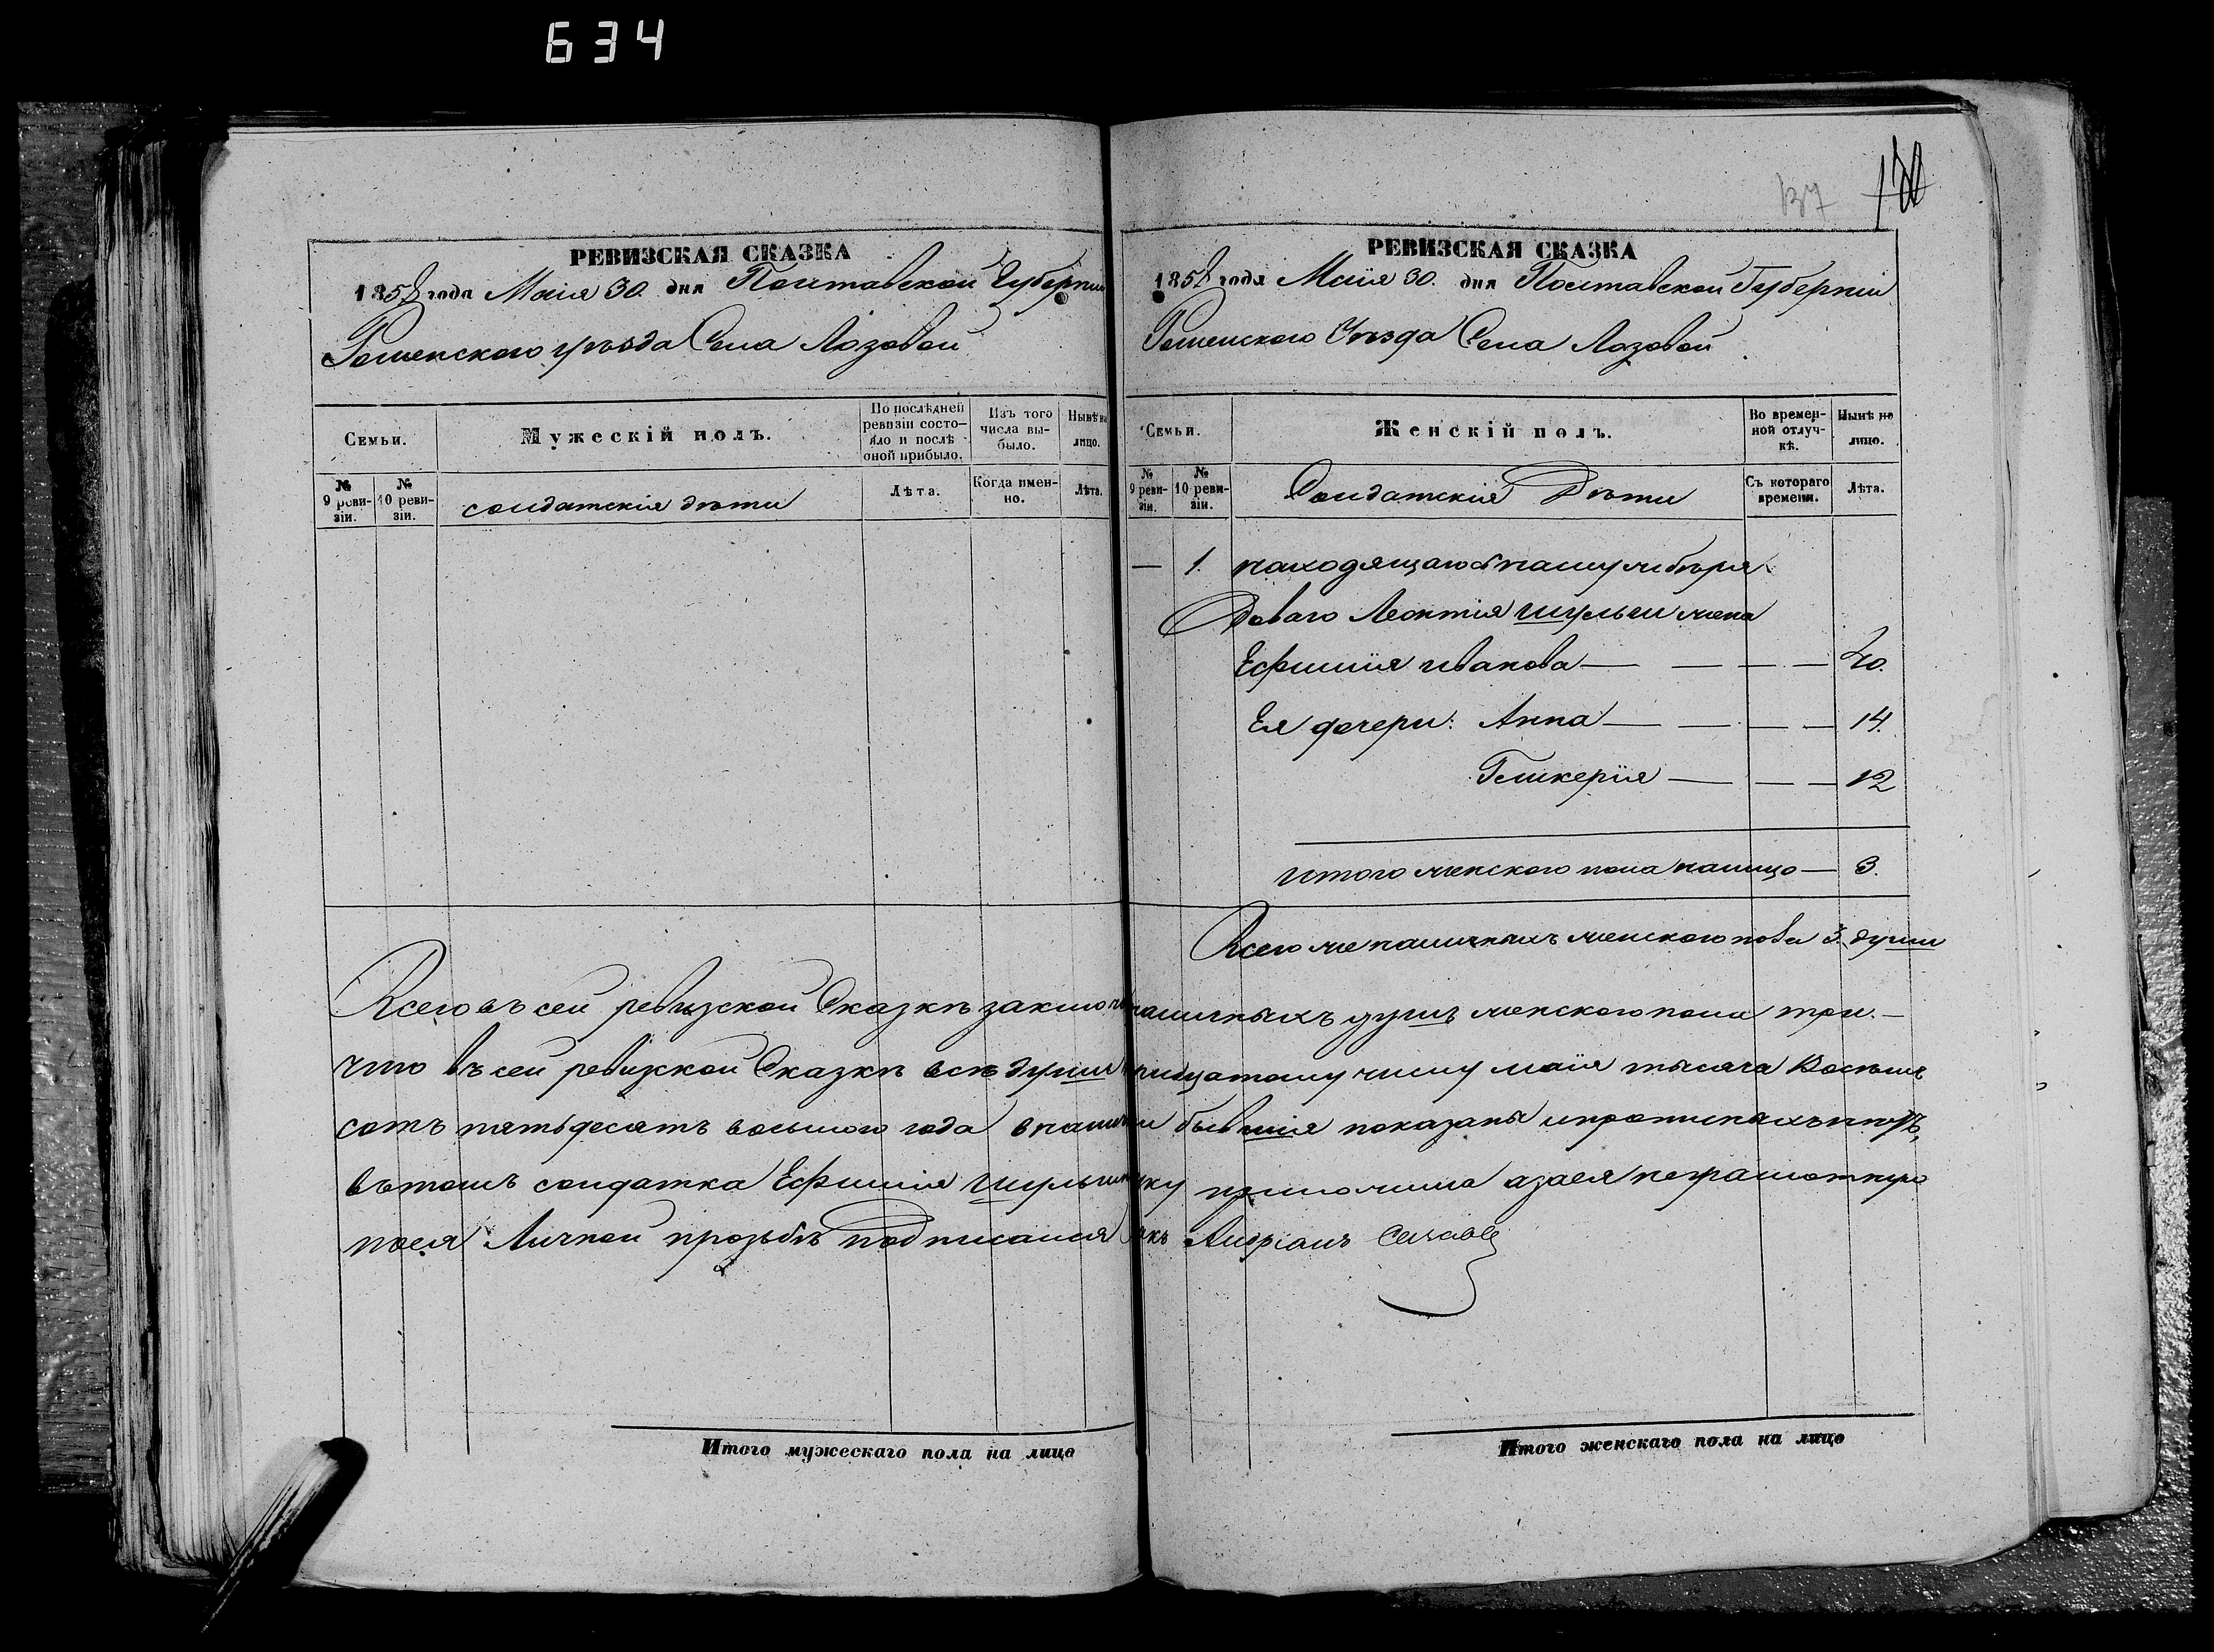 634
137
РЕВИЗСКАЯ СКАЗКА
1858 года Маія 30. дня Полтавской Губерніи
Роменского уѣзда Села Лозовой
Семьи.
Мужескій полъ.
По послѣдней ревизіи состояло и послѣ оной прибыло.
Изъ того числа выбыло.
Нынѣ на лицо.
№ 9 ревизіи.
№ 10 ревизіи.
солдатскія дѣти
Лѣта.
Когда именно.
Лѣта.
РЕВИЗСКАЯ СКАЗКА
1858 года Маія 30. дня Полтавской Губерніи
Роменского Уѣзда Села Лозовой
Семьи.
Женскій полъ.
Во временной отлучкѣ.
Нынѣ на лицо.
№ 9 ревизіи.
№ 10 ревизіи.
Солдатскія Дѣти
Съ котораго времени.
Лѣта.
— 1. находящагося наслужбѣ ря
доваго Леонтія Шульги жена
Ефимія иванова — — — — 40.
Ея дочери: Анна — — — — 14.
Гликерія — — — 12
Итого женского пола налицо — 3.
Всего же наличныхъ женского пола 3. души
Всего въ сей ревизской Сказкѣ заключ наличныхъ душъ женского пола три. —
что въ сей ревизской Сказкѣ всѣ души тридцатому числу маія тысяча Восемь
сотъ пятьдесятъ восьмого года вналичи бывшія показаны ипропис­ныхъ нѣтъ,
вътомъ солдатка Ефимія руку приложила азаея неграмотную
поея Личной прозьбѣ подписался Андріанъ
Итого мужескаго пола на лицо
Итого женскаго пола на лицо